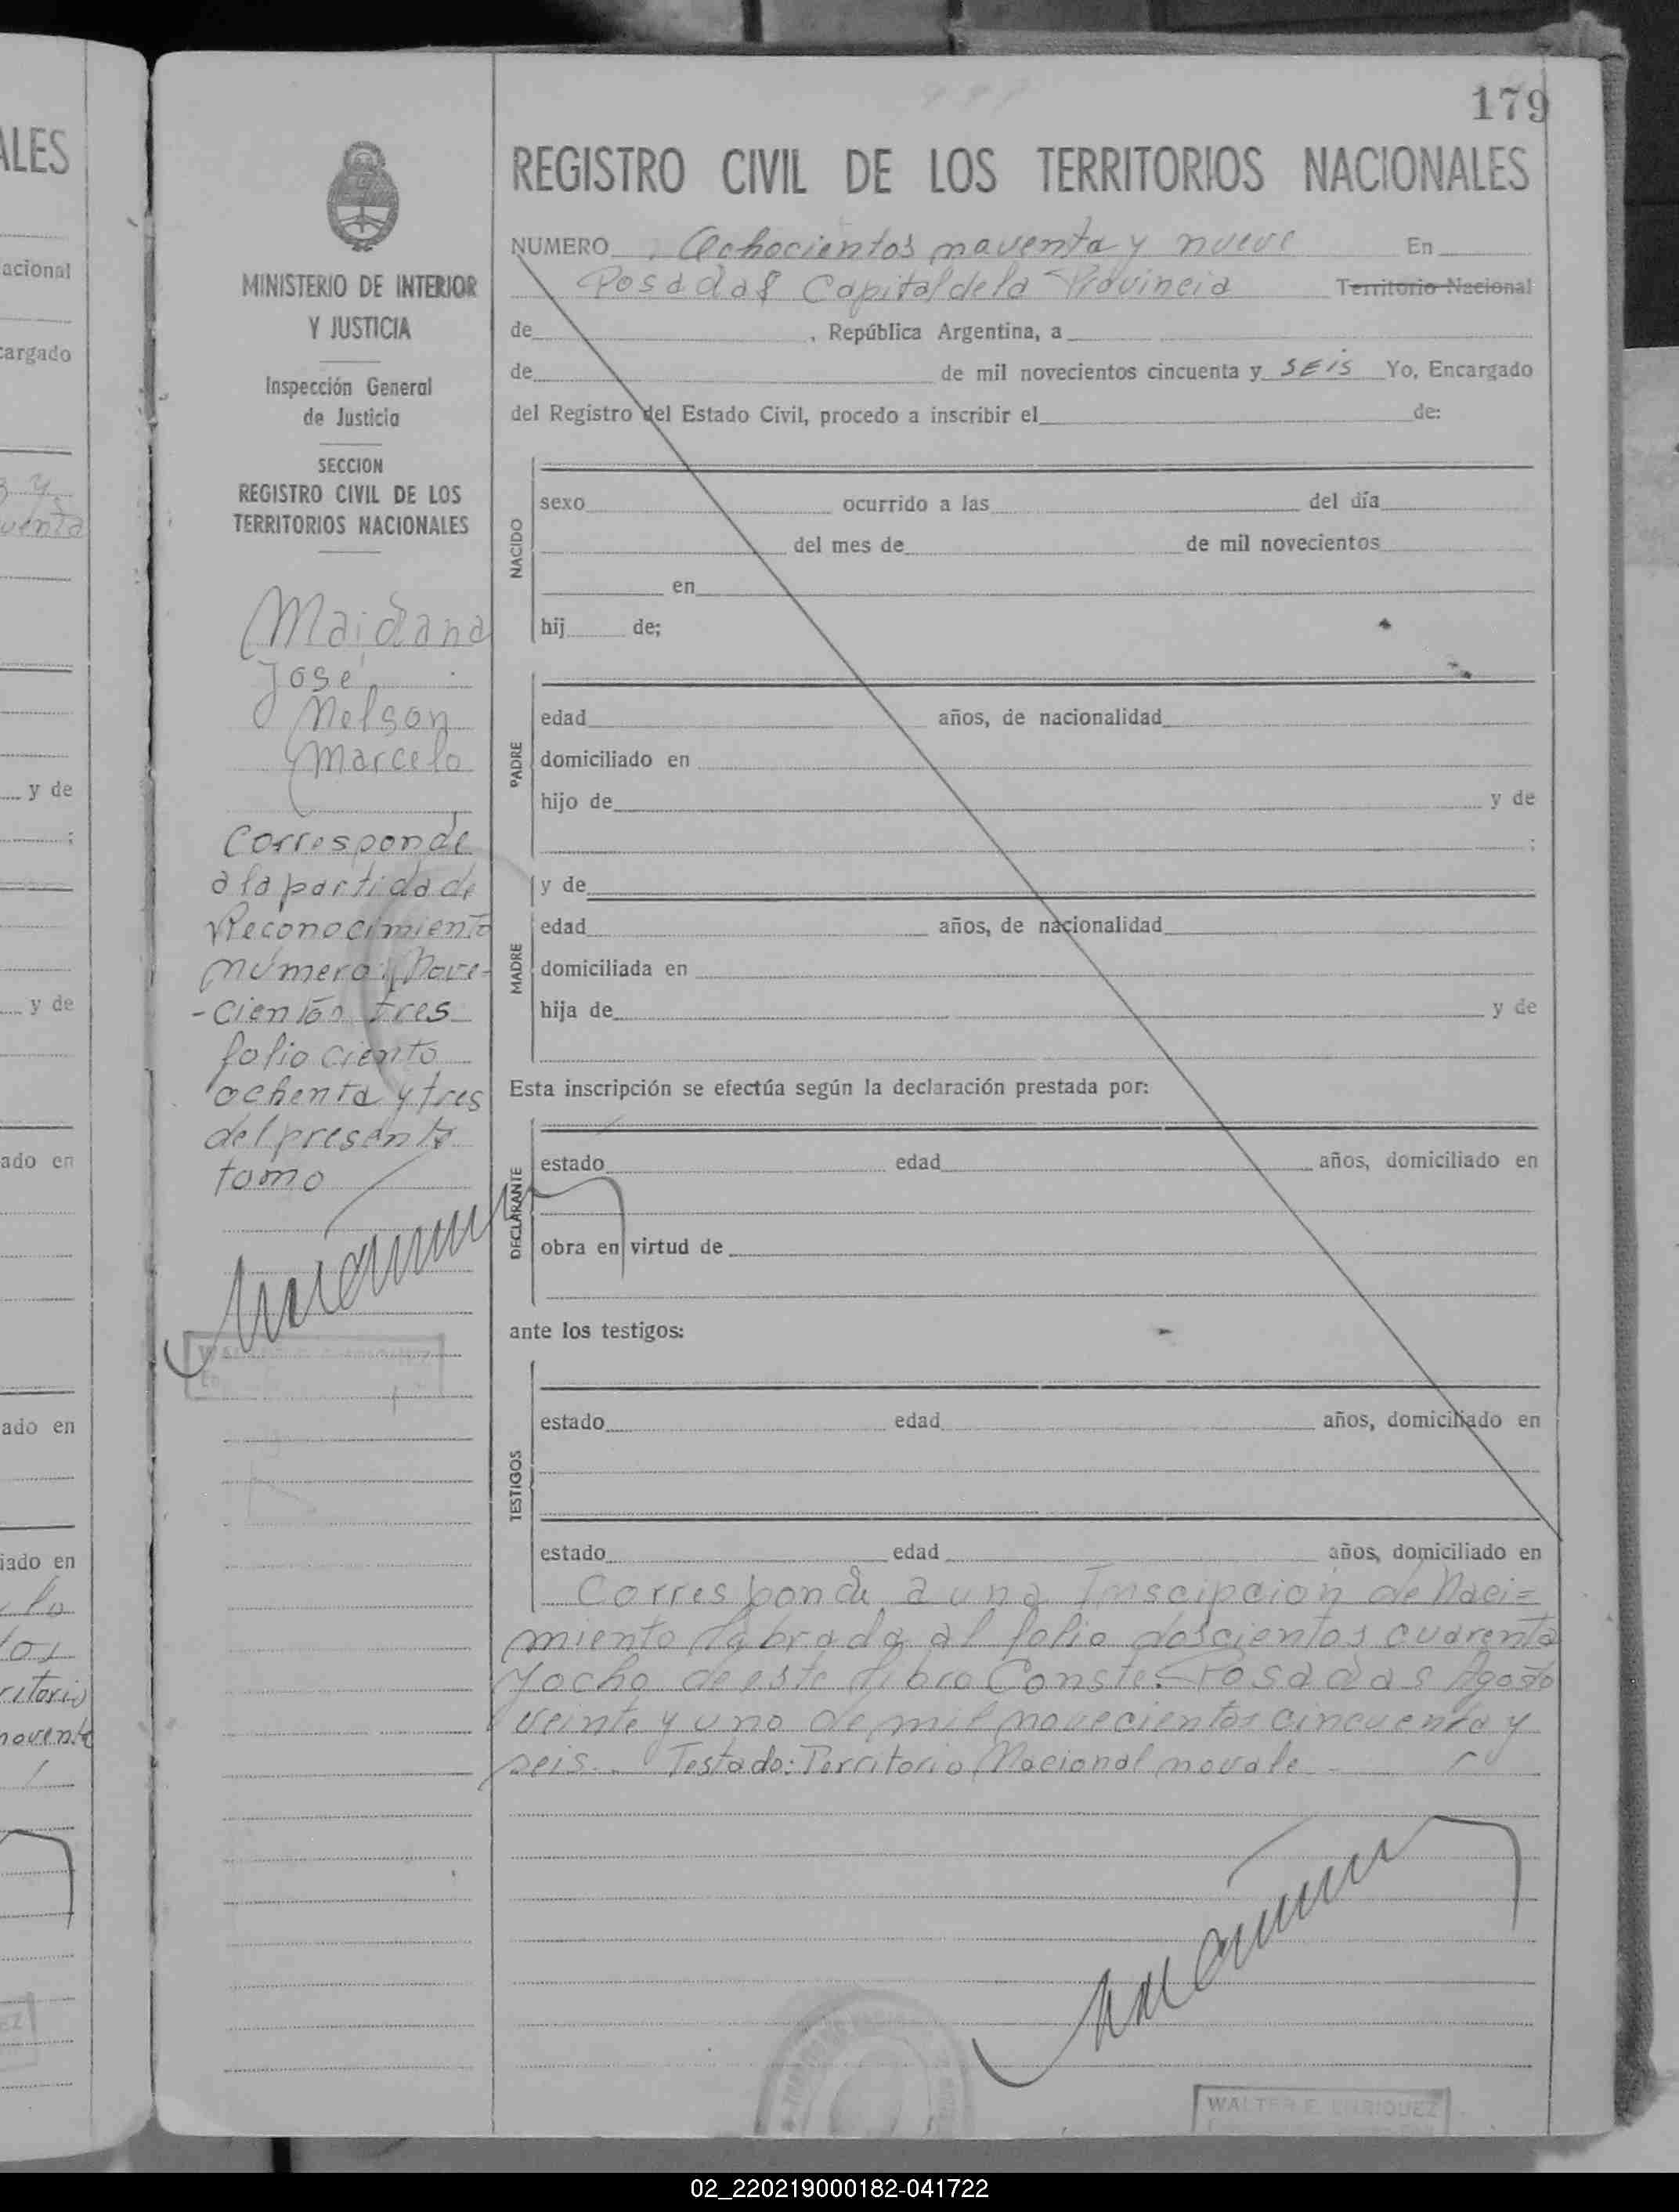 179
REGISTRO CIVIL DE LOS TERRITORIOS NACIONALES
NUMERO Ochocientos naventa y nueve En
Posadas Capital de la Provincia Territorio Nacional
de , República Argentina, a
de de mil novecientos cincuenta y SEIS Yo, Encargado
del Registro del Estado Civil, procedo a inscribir el de:
NACIDO
sexo ocurrido a las del día
del mes de de mil novecientos
en
hij de;
PADRE
edad años, de nacionalidad
domiciliado en
hijo de y de
;
MADRE
y de
edad años, de nacionalidad
domiciliada en
hija de y de
Esta inscripción se efectúa según la declaración prestada por:
DECLARANTE
estado edad años, domiciliado en
obra en virtud de
ante los testigos:
TESTIGOS
estado edad años, domiciliado en
estado edad años, domiciliado en
Corresponde a una Inscipcion de Naci=
miento labrada al folio doscientos cuarenta
y ocho de este libro Conste. Posadas Agosto
veinte y uno de mil novecientos cincuenta y
seis.. Testado: Territorio Nacional no vale
WALTER E. ENRIQUEZ
MINISTERIO DE INTERIOR
Y JUSTICIA
Inspección General
de Justicia
SECCION
REGISTRO CIVIL DE LOS
TERRITORIOS NACIONALES
Maidana
José
Nelson
Marcelo
Corresponde
a la partida de
Reconocimiento
número Nove-
-cientos tres
folio ciento
ochenta y tres
del presente
tomo
ALES
acional
cargado
y de
;
y de
ado en
ado en
iado en
02_220219000182-041722